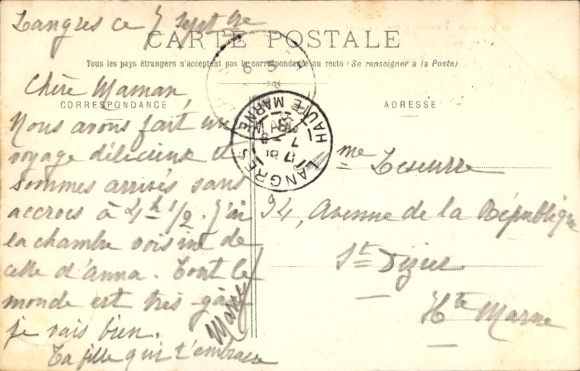 Langres ce 7 Sept
CARTE POSTALE
Tous les pays étrangers n'acceptent pas la correspondance au recto (Se renseigner à la Poste)
Chère Maman,
CORRESPONDANCE
Nous avons fait un
voyage délicieux et
sommes arrivés sans
accrocs à 4h 1/2. J'ai
la chambre voisine de
celle d'Anna. Tout le
monde est très gai
je vais bien.
Ta fille qui t'embrasse
LANGRES
HAUTE MARNE
ADRESSE
Mme Leseurre
94, Avenue de la République
St Dizier
Hte Marne